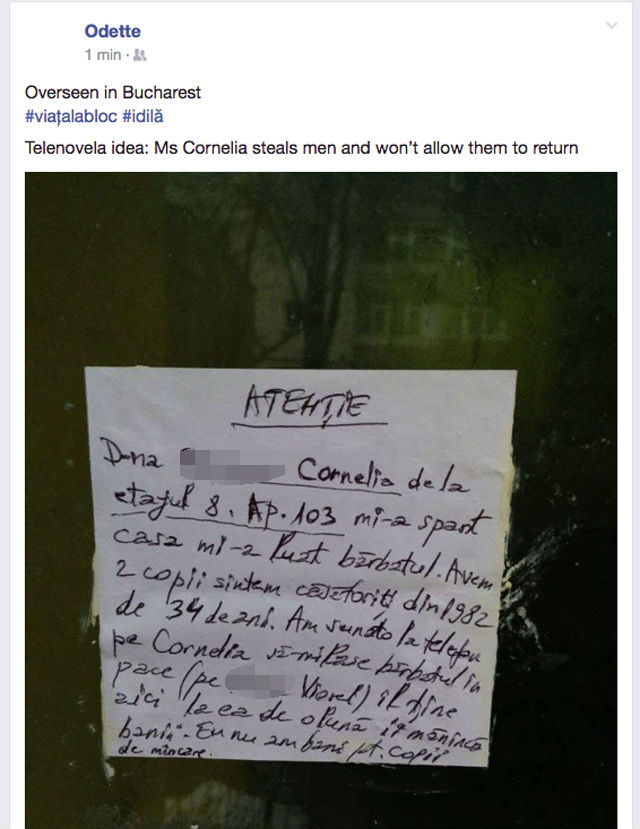 Odette
1 min ·
Overseen in Bucharest
#viațalabloc #idilă
Telenovela idea: Ms Cornelia steals men and won’t allow them to return
ATENȚIE
D-na Cornelia de la
etajul 8. Ap. 103 mi-a spart
casa mi-a luat bărbatul. Avem
2 copii sintem căsătoriți din 1982
de 34 de ani. Am sunato la telefon
pe Cornelia să-mi lase bărbatul în
pace (pe Viorel) îl ține
aici la ea de o lună "îi mănîncă
banii". Eu nu am bani pt. copii
de mîncare.